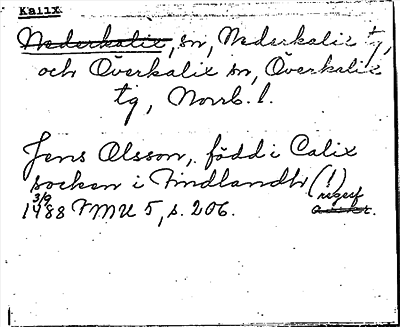 Kalix
Nederkalix, sn, Nederkalix tg,
och Överkalix sn, Överkalix
tg, Norrb. l.
Jens Olsson, född i Calix
socken i Findlandh (!)
3/9 utgeuf
1488 FMU 5, s. 206. avskr.